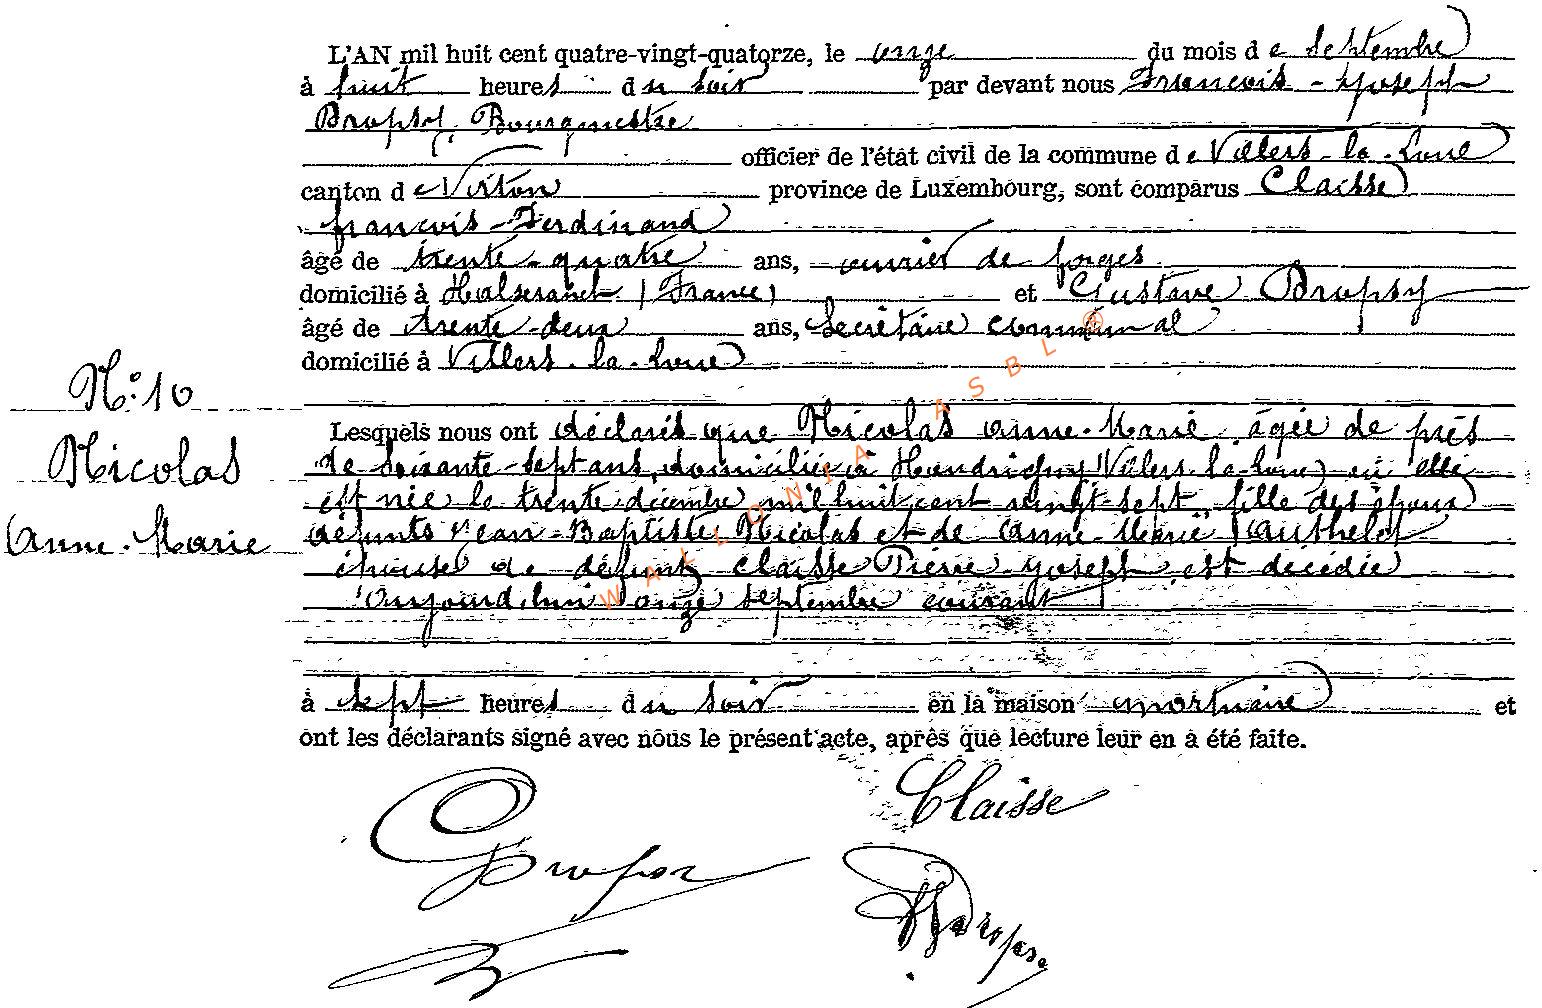 L'AN mil huit cent quatre-vingt-quatorze, le onze du mois de Septembre
à huit heures du soir par devant nous François-Joseph
Dropsy, Bourgmestre
officier de l'état civil de la commune de Villers-la-Loue
canton de Virton province de Luxembourg, sont comparus Claisse
François-Ferdinand
âgé de trente-quatre ans, ouvrier de forges
domicilié à (France) et Gustave Dropsy
âgé de trente-deux ans, Secrétaire communal
domicilié à Villers-la-Loue
N° 10
Lesquels nous ont déclaré que Nicolas Anne-Marie, âgée de près
Nicolas
de soixante-sept ans, domiciliée à Houdrigny (Villers-la-Loue) où elle
est née le trente décembre mil huit cent vingt-sept, fille des époux
Anne-Marie
défunts Jean-Baptiste Nicolas et de Anne-Marie Authelet
épouse de défunt Claisse Pierre-Joseph est décédée
aujourd'hui onze septembre courant
à sept heures du soir en la maison mortuaire et
ont les déclarants signé avec nous le présent acte, après que lecture leur en a été faite.
Claisse
Dropsy
Dropsy
WALLONIA ASBL ®